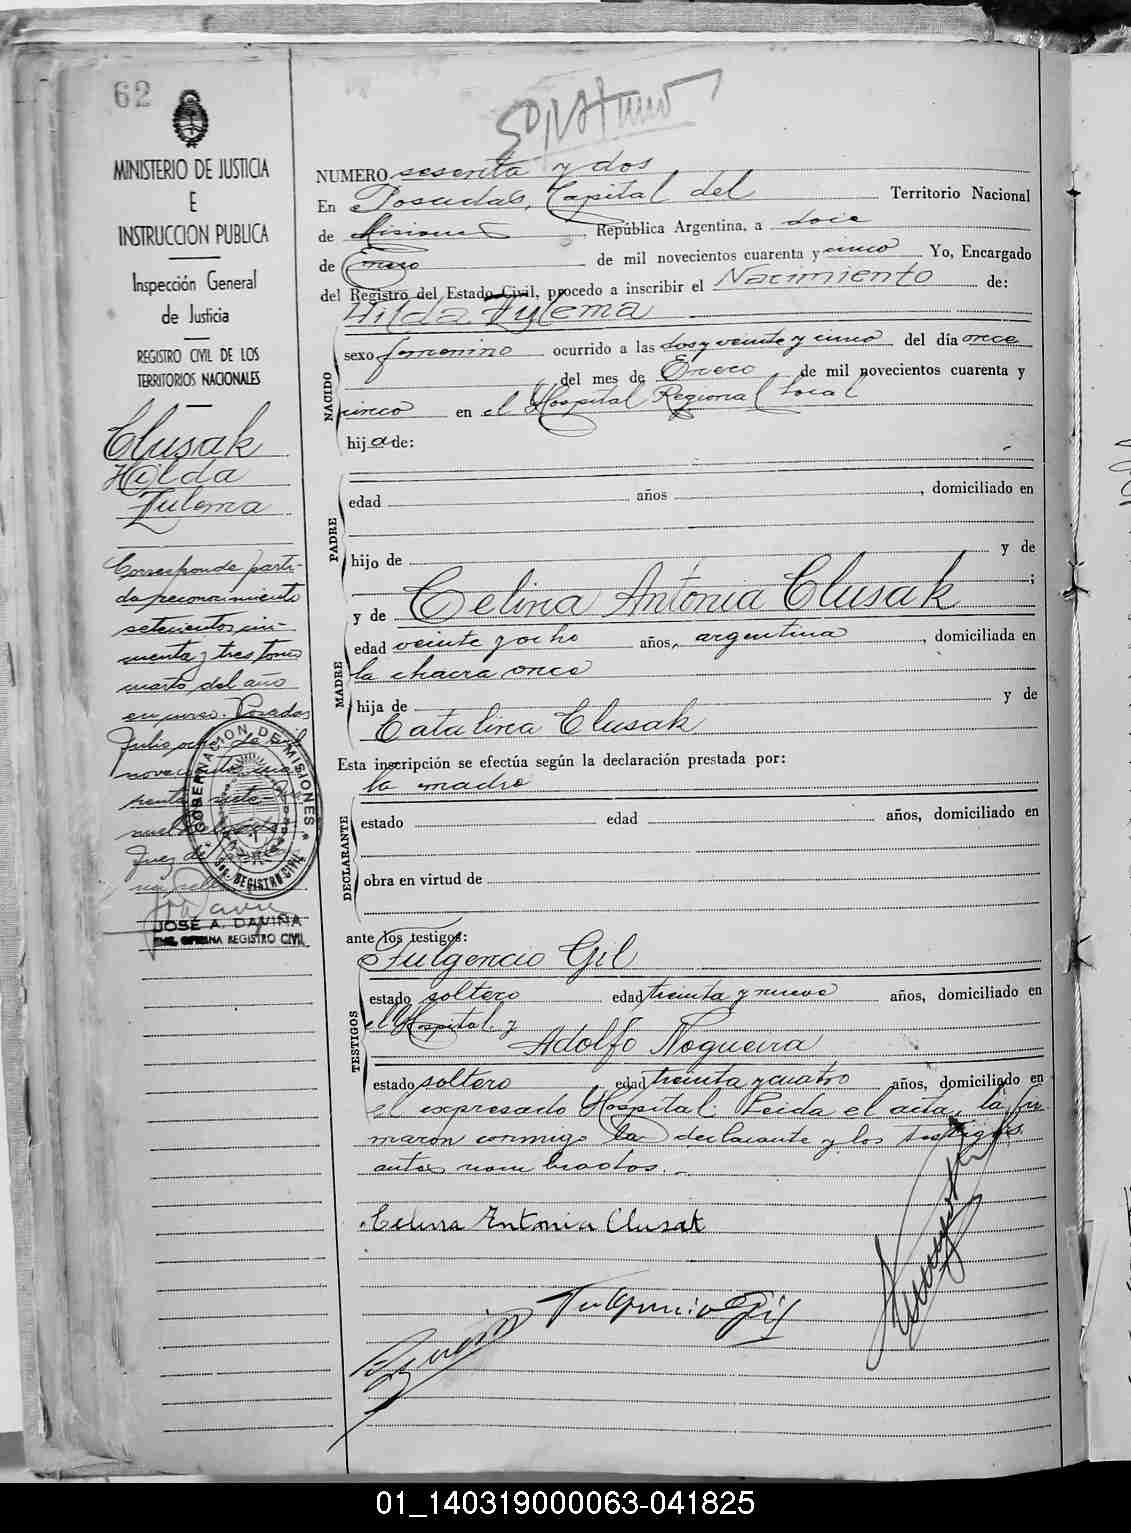 62
MINISTERIO DE JUSTICIA
E
INSTRUCCION PUBLICA
Inspección General
de Justicia
REGISTRO CIVIL DE LOS
TERRITORIOS NACIONALES
Clusak
Hilda
Zulema
Corresponde parti-
da reconocimiento
setecientos cin-
cuenta y tres tomo
cuarto del año
en curso. Posadas
Julio ocho de mil
novecientos cua
renta
Juez de
GOBERNACION DE MISIONES
REGISTRO CIVIL
JOSÉ A. DAVIÑA
OFICINA REGISTRO CIVIL
NUMERO sesenta y dos
En Posadas, Capital del Territorio Nacional
de Misiones República Argentina, a doce
de Enero de mil novecientos cuarenta y cinco Yo, Encargado
del Registro del Estado Civil, procedo a inscribir el Nacimiento de:
Hilda Zulema
NACIDO
sexo femenino ocurrido a las dos y veinte y cinco del día once
del mes de Enero de mil novecientos cuarenta y
cinco en el Hospital Regional local
hija de:
PADRE
edad años , domiciliado en
hijo de y de
;
y de Celina Antonia Clusak
MADRE
edad veinte y ocho años, argentina , domiciliada en
la chacra once
hija de y de
Catalina Clusak
Esta inscripción se efectúa según la declaración prestada por:
la madre
DECLARANTE
estado edad años, domiciliado en
obra en virtud de
ante los testigos:
Fulgencio Gil
TESTIGOS
estado soltero edad treinta y nueve años, domiciliado en
el Hospital y
Adolfo Nogueira
estado soltero edad treinta y cuatro años, domiciliado en
el expresado Hospital. Leida el acta, la fir
maron conmigo la declarante y los testigos
antes nombrados.
Celina Antonia Clusak
Fulgencio Gil
01_140319000063-041825